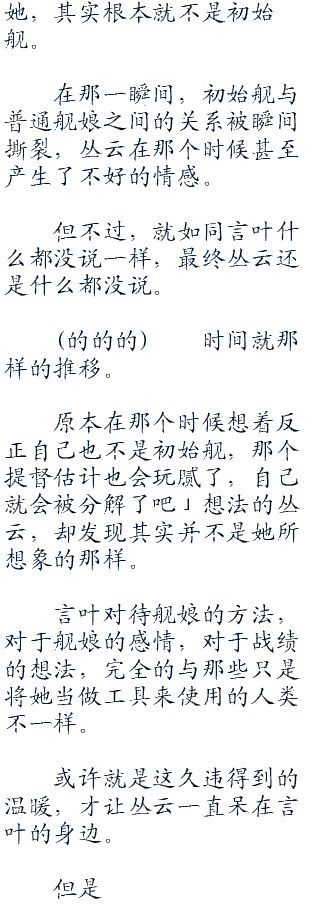 她，其实根本就不是初始
舰。
在那一瞬间，初始舰与
普通舰娘之间的关系被瞬间
撕裂，丛云在那个时候甚至
产生了不好的情感。
但不过，就如同言叶什
么都没说一样，最终丛云还
是什么都没说。
(的的的)　　时间就那
样的推移。
原本在那个时候想着反
正自己也不是初始舰，那个
提督估计也会玩腻了，自己
就会被分解了吧」想法的丛
云，却发现其实并不是她所
想象的那样。
言叶对待舰娘的方法，
对于舰娘的感情，对于战绩
的想法，完全的与那些只是
将她当做工具来使用的人类
不一样。
或许就是这久违得到的
温暖，才让丛云一直呆在言
叶的身边。
但是